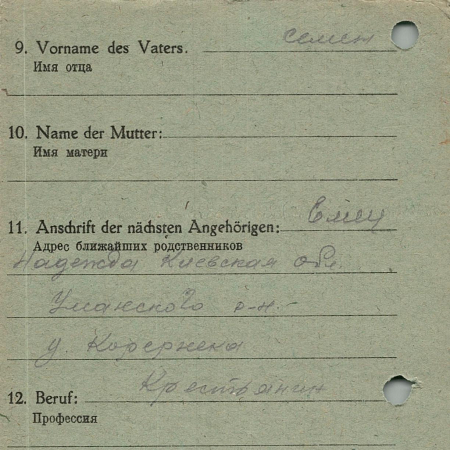 9. Vorname des Vaters. семен
Имя отца
10. Name der Mutter:
Имя матери
11. Anschrift der nächsten Angehörigen: Емец
Адрес ближайших родственников
Надежда Киевская обл.
Уманского р-н.
12. Beruf: Крестьянин
Профессия